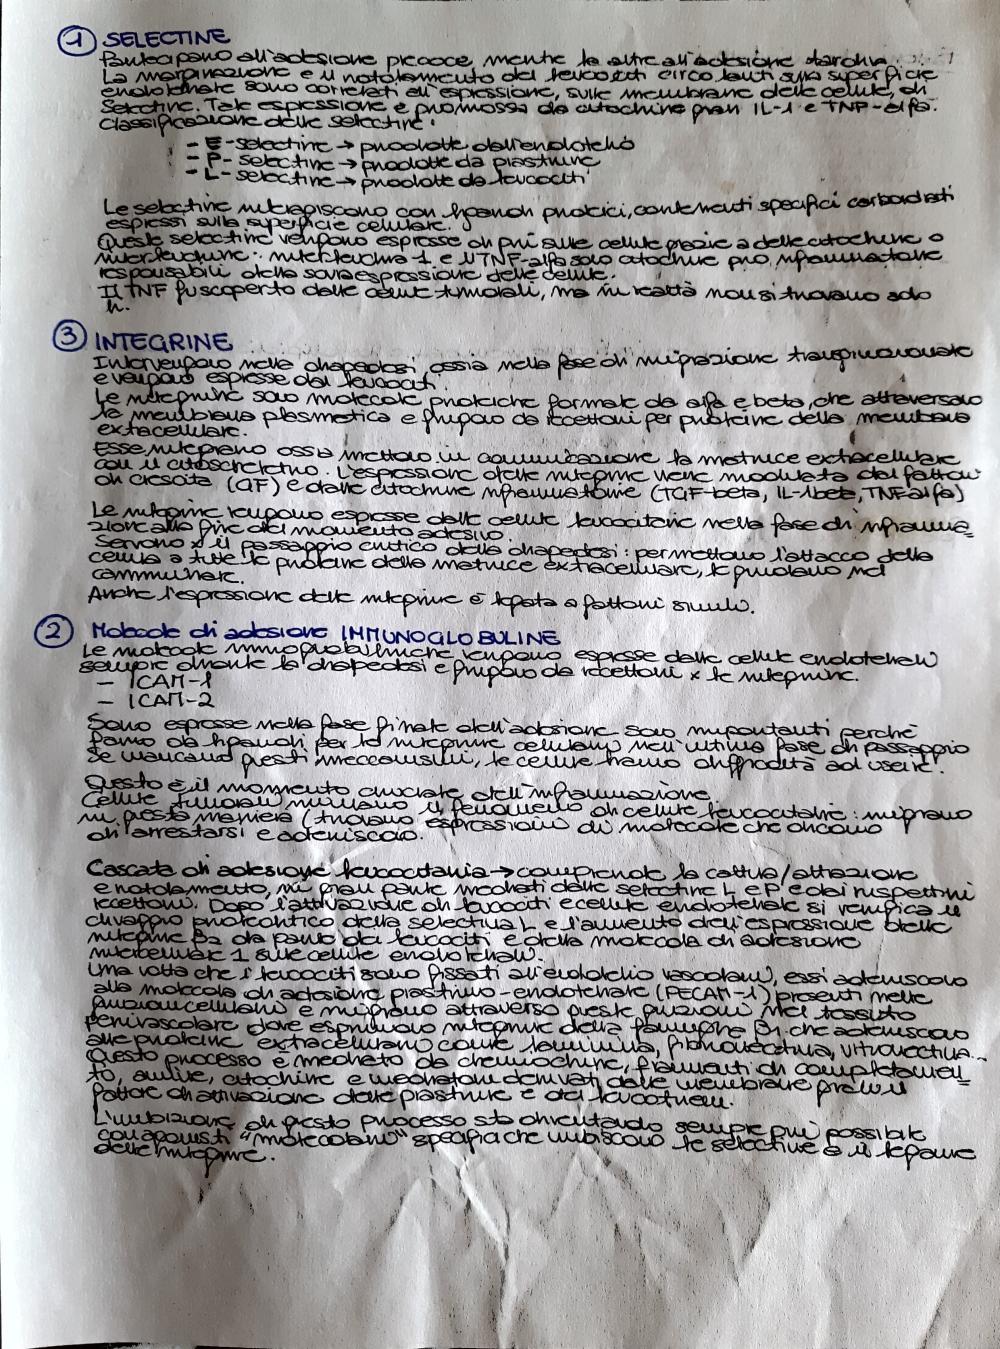 1 SELECTINE
Partecipano all'adesione precoce, mentre le altre all'adesione tardiva.
La marginazione e il rotolamento dei leucociti circolanti sulla superficie
endoteliale sono correlati all'espressione, sulle membrane delle cellule, di
Selectine. Tale espressione è promossa da citochine quali IL-1 e TNF-alfa.
Classificazione delle selectine:
- E-selectine → prodotte dall'endotelio
- P-selectine → prodotte da piastrine
- L-selectine → prodotte da leucociti
Le selectine interagiscono con ligandi proteici, contenenti specifici carboidrati
espressi sulla superficie cellulare.
Queste selectine vengono espresse di più sulle cellule grazie a delle citochine o
interleuchine: interleuchina 1 e il TNF-alfa sono citochine pro infiammatorie
responsabili della sovraespressione delle cellule.
Il TNF fu scoperto dalle cellule tumorali, ma in realtà non si trovano solo
lì.
3 INTEGRINE
Intervengono nella diapedesi, ossia nella fase di migrazione
e vengono espresse dai leucociti.
Le integrine sono molecole proteiche formate da alfa e beta, che attraversano
la membrana plasmatica e fungono da recettori per proteine della membrana
extracellulare.
Esse integrano ossia mettono in comunicazione la matrice extracellulare
con il citoscheletro. L'espressione delle integrine viene modulata dai fattori
di crescita (GF) e dalle citochine infiammatorie (TGF-beta, IL-1beta, TNF-alfa)
Le integrine vengono espresse dalle cellule leucocitarie nella fase di infiamma=
zione alla fine del momento adesivo.
Servono x il passaggio critico della diapedesi: permettono l'attacco della
cellula a tutte le proteine della matrice extracellulare, le guidano nel
camminare.
Anche l'espressione delle integrine è legata a fattori simili.
2 Molecole di adesione IMMUNOGLOBULINE
Le molecole immunoglobuliniche vengono espresse dalle cellule endoteliali
sempre durante la diapedesi e fungono da recettori x le integrine.
- ICAM-1
- ICAM-2
Sono espresse nella fase finale dell'adesione. Sono importanti perché
fanno da ligandi per le integrine cellulari nell'ultima fase di passaggio
Se mancano questi meccanismi, le cellule hanno difficoltà ad uscire.
Questo è il momento cruciale dell'infiammazione.
Cellule tumorali mimano il fenomeno di cellule leucocitarie: migrano
in questa maniera (trovano espressioni di molecole che dicono
di arrestarsi e aderiscono.
Cascata di adesione leucocitaria → comprende la cattura/attrazione
e rotolamento, in gran parte mediati dalle selectine L e P e dai rispettivi
recettori. Dopo l'attivazione di leucociti e cellule endoteliali si verifica il
clivaggio proteolitico della selectina L e l'aumento dell'espressione delle
integrine B2 da parte dei leucociti e della molecola di adesione
intercellulare 1 sulle cellule endoteliali.
Una volta che i leucociti sono fissati all'endotelio vascolare, essi aderiscono
alla molecola di adesione piastrino-endoteliale (PECAM-1) presenti nelle
giunzioni cellulari e migrano attraverso queste giunzioni nel tessuto
perivascolare dove esprimono integrine della famiglia B1 che aderiscono
alle proteine extracellulari come laminina, fibronectina, vitronectina...
Questo processo è mediato da chemiochine, frammenti di complemen=
to, amine, citochine e mediatori derivati dalle membrane quali il
fattore di attivazione delle piastrine e dei leucotrieni.
L'inibizione di questo processo sta diventando sempre più possibile
con composti "molecolari" specifici che inibiscono le selectine o il legame
delle integrine.